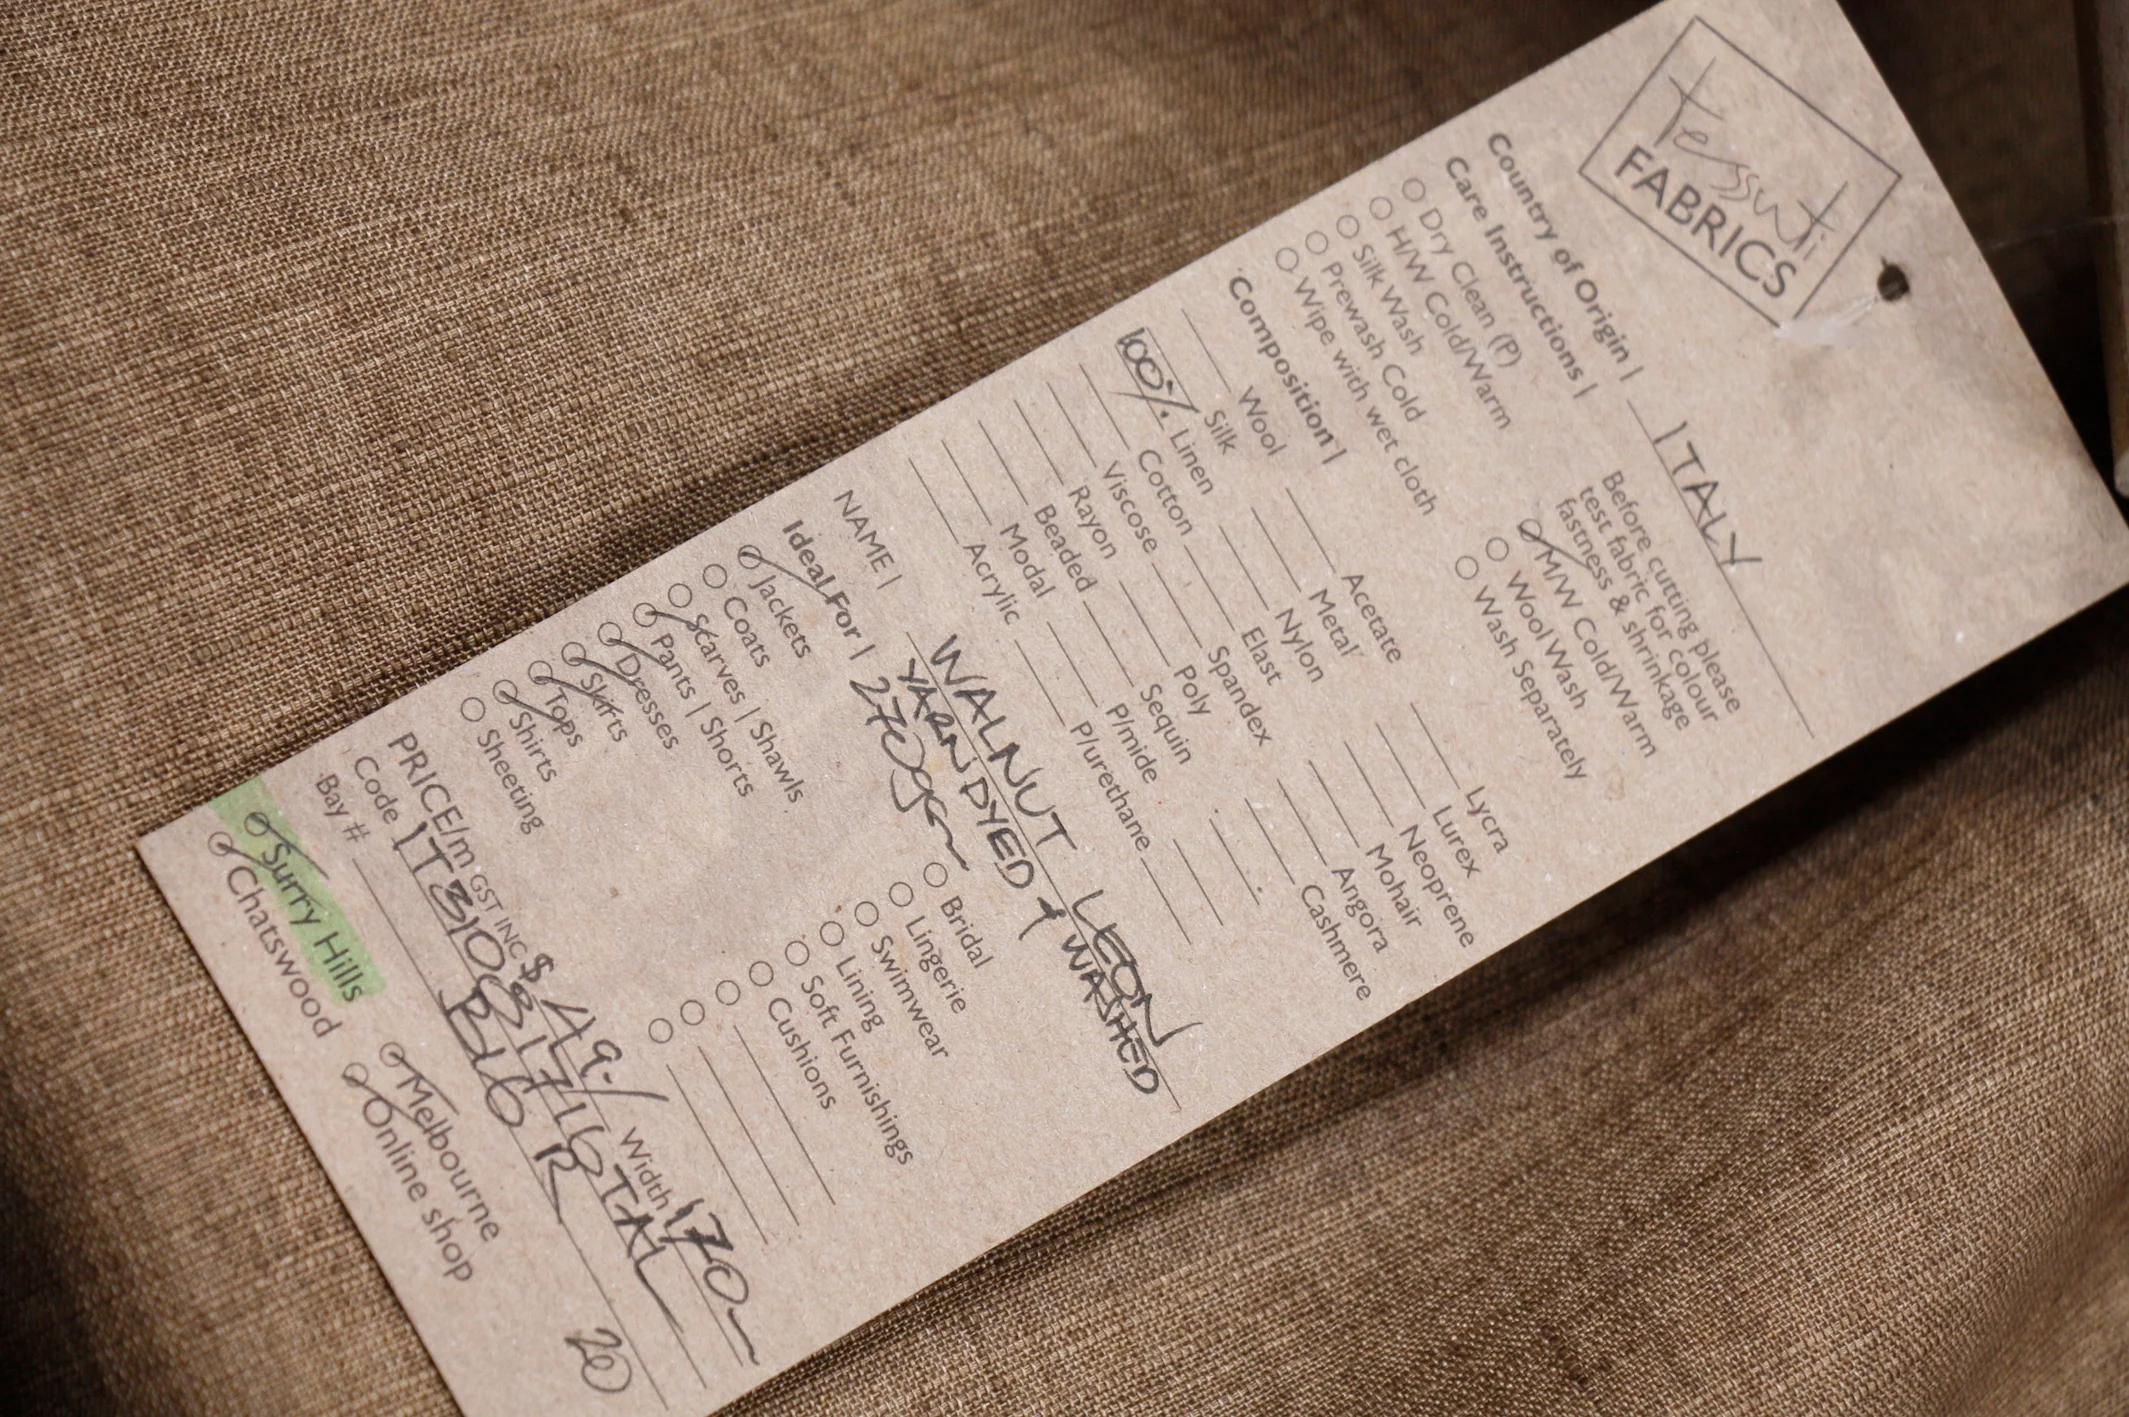 tessuti
FABRICS
Country of Origin | ITALY
Care Instructions |
Before cutting please
test fabric for colour
fastness & shrinkage
Dry Clean (P)
H/W Cold/Warm
Silk Wash
Prewash Cold
Wipe with wet cloth
M/W Cold/Warm
Wool Wash
Wash Separately
Composition |
Wool
Silk
100% Linen
Cotton
Viscose
Rayon
Beaded
Modal
Acrylic
Acetate
Metal
Nylon
Elast
Spandex
Poly
Sequin
P/mide
P/urethane
Lycra
Lurex
Neoprene
Mohair
Angora
Cashmere
NAME | WALNUT LEON
YARN DYED + WASHED
Ideal For | 270gsm
Jackets
Coats
Scarves | Shawls
Pants | Shorts
Dresses
Skirts
Tops
Shirts
Sheeting
Bridal
Lingerie
Swimwear
Lining
Soft Furnishings
Cushions
PRICE/m GST INC $49./ Width 170
Code
Bay # BIG R
Surry Hills
Chatswood
Melbourne
Online shop
20